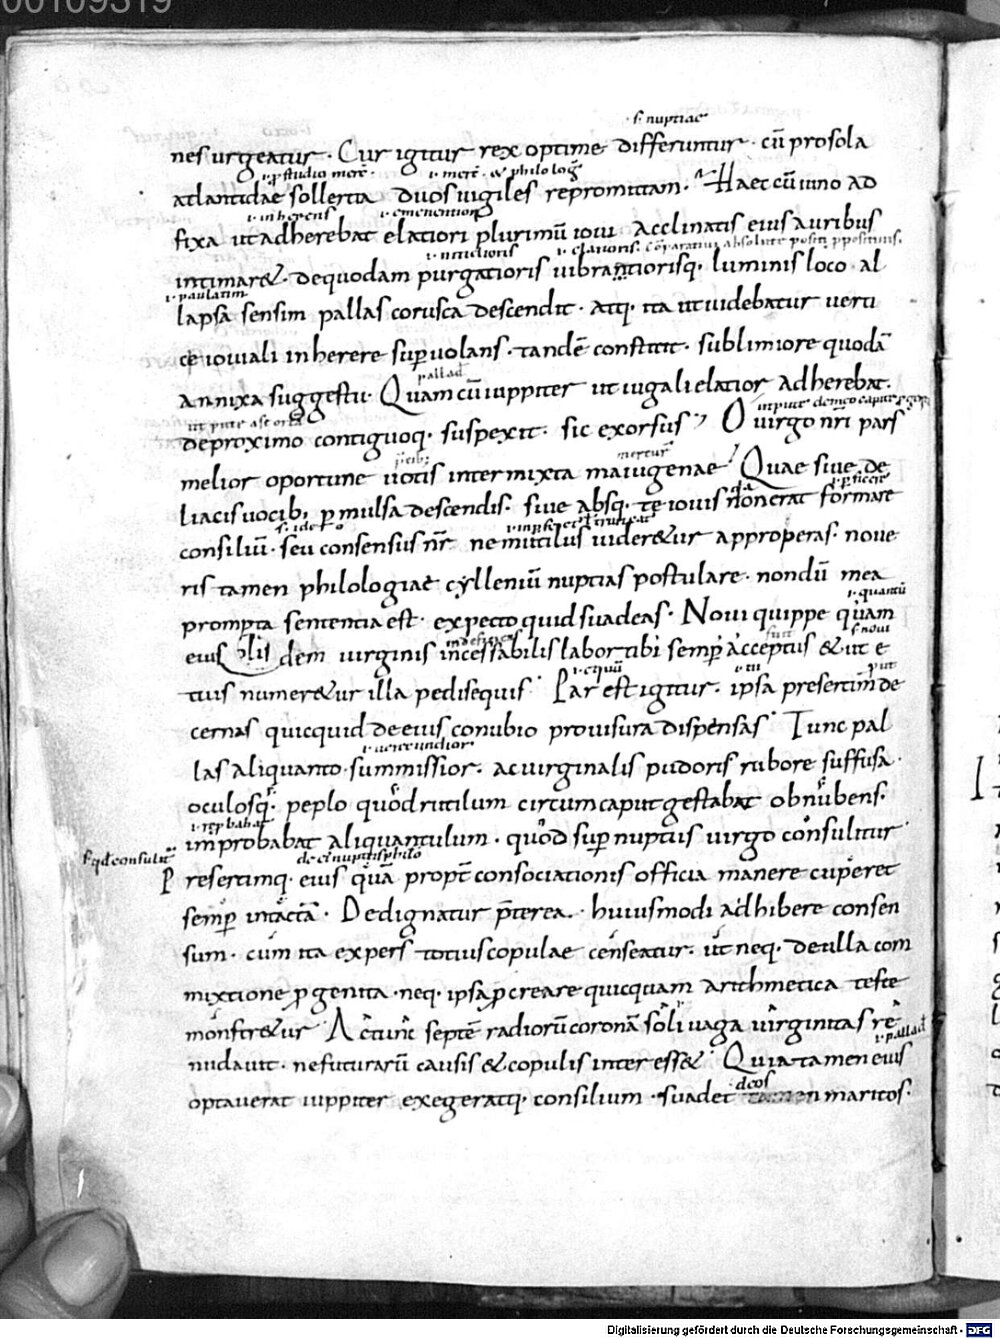 00109319
.s. nuptiae
nes urgeatur. Cur igitur rex optime differuntur. cū pro sola
.i. ꝑ studio merc̄. .i. merc̄. & philoloḡ
atlantidae sollertia duos uigiles repromittam. Haec cū iuno ad
.i. inherens .i. eminentiori
fixa ut adherebat elatiori plurimū ioui acclinatis eius auribus
.i. nitidioris .i. clarioris. comparatiuus absolute
intimar&. de quodam purgatioris uibrantiorisq. luminis loco. al
.i. paulatim
lapsa sensim pallas corusca descendit. atq. ita ut uidebatur uerti
ce iouiali inherere suꝑuolans. tandē constitit. sublimiore quodā
pallad̄
annixa suggestu. Quam cū iuppiter ut iugali elatior adherebat.
de proximo contiguoq. suspexit. sic exorsus; O uirgo nr̄i pars
mercur̄
melior oportune uotis intermixta maiugenae! Quae siue de
liacis uocib; ꝑmulsa descendis. siue absq. te iouis non erat formare
consiliū. seu consensus nr̄ ne mutilus uider&ur approperas. noue
ris tamen philologiae cylleniū nuptias postulare. nondū mea
.i. quantū
prompta sententia est. expecto quid suadeas. Noui quippe quam
.s. noui
eius dem uirginis incessabilis labor tibi semꝑ acceptus & ut e
.i. equū .i. tu
tuis numer&ur illa pedisequis. Par est igitur. ipsa presertim de
cernas quicquid de eius conubio prouisura dispensas. Tunc pal
.i. uerecundior.
las aliquanto summissior. ac uirginalis pudoris rubore suffusa.
oculosq. peplo quod rutilum circum caput gestabat obnubens.
.i. reꝓbabat
improbabat aliquantulum. quod suꝑ nuptiis uirgo consulitur
s. qd̄ consulit̄
Presertimq. eius quā propt̄ consociationis officia manere cuperet
semꝑ intactā. Dedignatur p̄terea. huiusmodi adhibere consen
sum. cum ita expers totius copulae censeatur. ut neq. de ulla com
mixtione ꝓgenita. neq. ipsa ꝓcreare quicquam arithmetica teste
monstr&ur. Ac tunc septē radiorū coronā soliuaga uirginitas re
.i. pallad̄
nudauit. ne futurarū causis & copulis interess&. Quia tamen eius
deos
optauerat iuppiter exegeratq. consilium. suadet maritos.
Digitalisierung gefördert durch die Deutsche Forschungsgemeinschaft - DFG